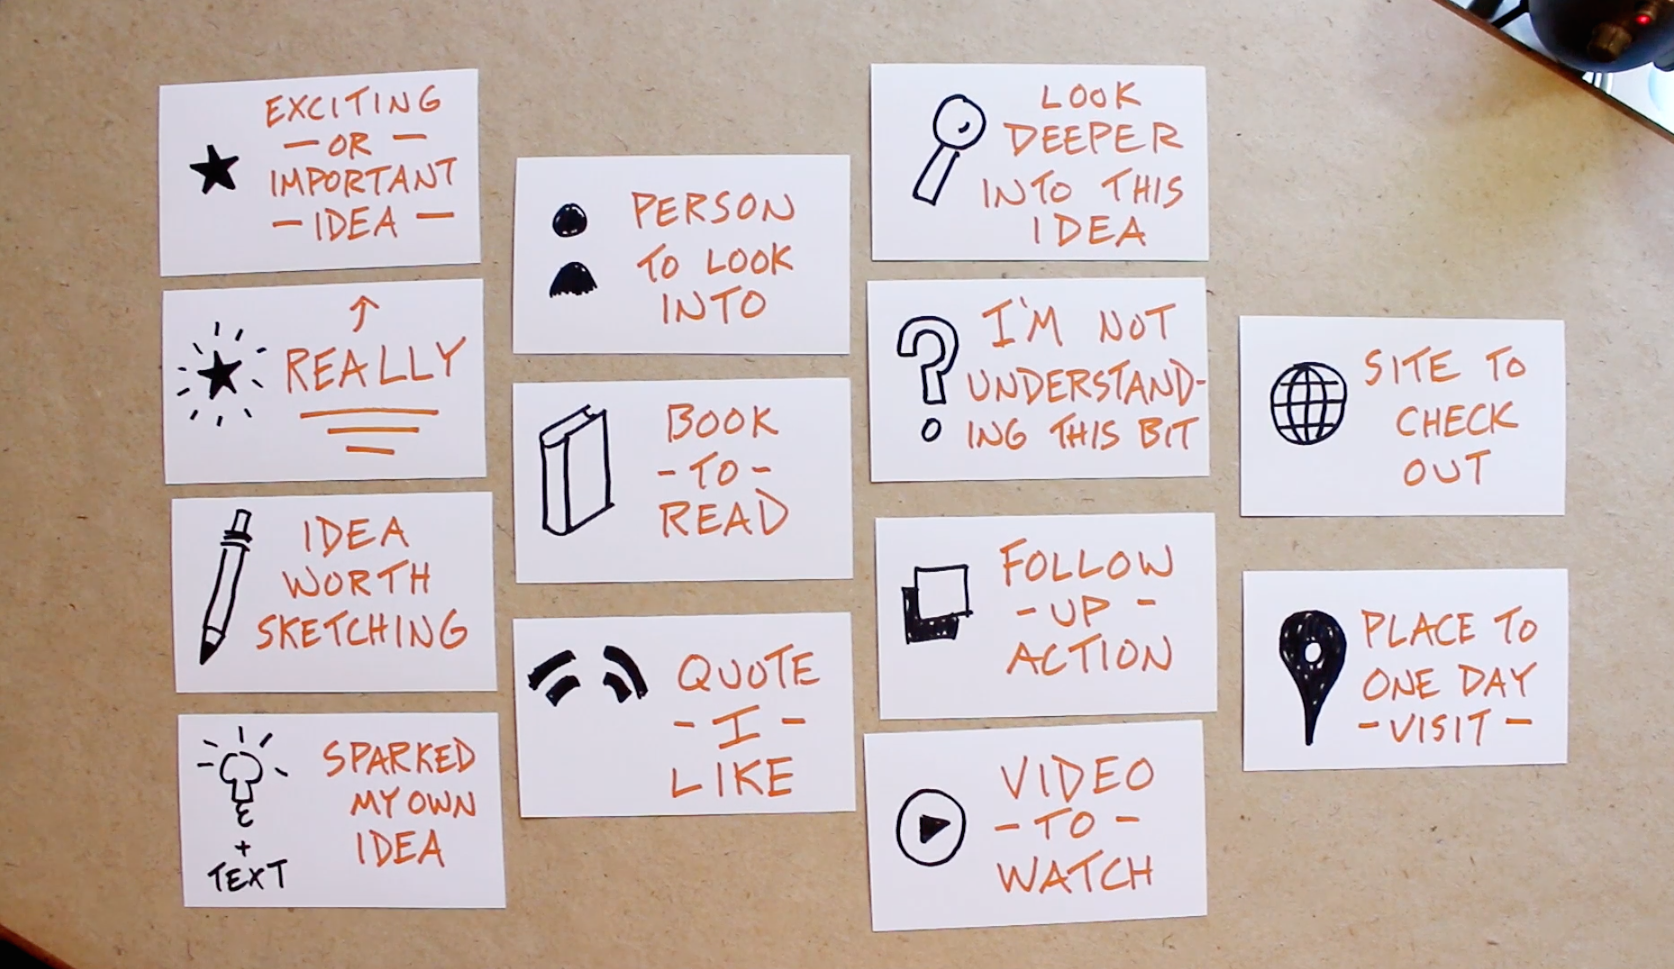 EXCITING
- OR -
IMPORTANT
- IDEA -
↑
REALLY
IDEA
WORTH
SKETCHING
+
TEXT
SPARKED
MY OWN
IDEA
PERSON
TO LOOK
INTO
BOOK
- TO -
READ
QUOTE
- I -
LIKE
LOOK
DEEPER
INTO THIS
IDEA
?
I'M NOT
UNDERSTAND-
ING THIS BIT
FOLLOW
- UP -
ACTION
VIDEO
- TO -
WATCH
SITE TO
CHECK
OUT
PLACE TO
ONE DAY
- VISIT -